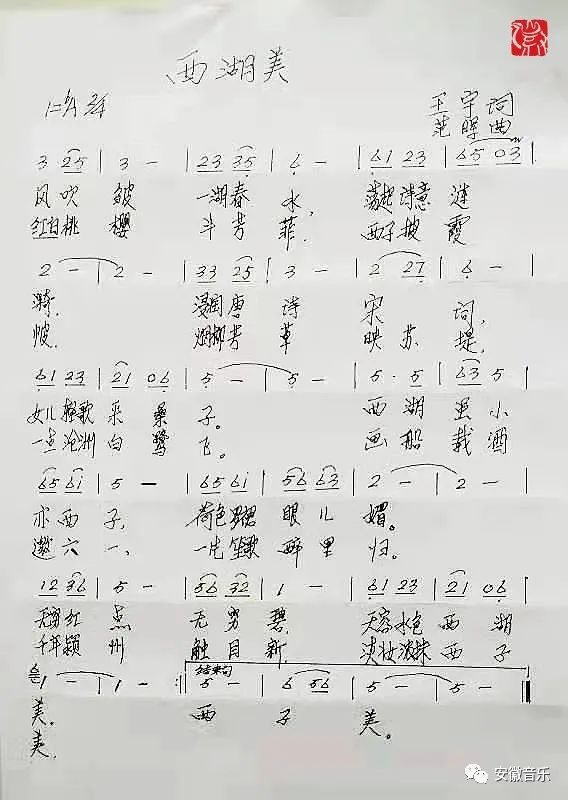 西湖美
王宇 词
范晖 曲
3 25 | 3 — | 23 35 | 6 — | 61 23 | 65 03 |
风吹 皱 一湖春 水， 荡起诗意 涟
红白桃 樱 斗芳 菲． 西子披 霞
2 — | 2 — | 33 25 | 3 — | 2 27 | 6 — |
漪． 浸润唐 诗 宋 词，
帔． 烟柳芳 草 映 苏 堤，
61 23 | 21 06 | 5 — | 5 — | 5 · 5 | 63 5 |
女儿 歌 采 桑 子。 西 湖 虽 小
一点沧洲 白 鹭 飞。 画 船 载 酒
65 61 | 5 — | 65 61 | 56 63 | 2 — | 2 — |
亦西 子， 荷色 裙 眼 儿 媚。
邀 六 一、 一片笙歌 醉 里 归。
12 36 | 5 — | 56 32 | 1 — | 61 23 | 21 06 |
无穷红 点 无 穷 碧． 天容水色 西 湖
千年颍 州 触 目 新． 淡妆浓抹 西 子
1 — | 1 — :| 结束句 5 — | 6 56 | 5 — | 5 — ‖
美． 西 子 美。
美．
安徽音乐